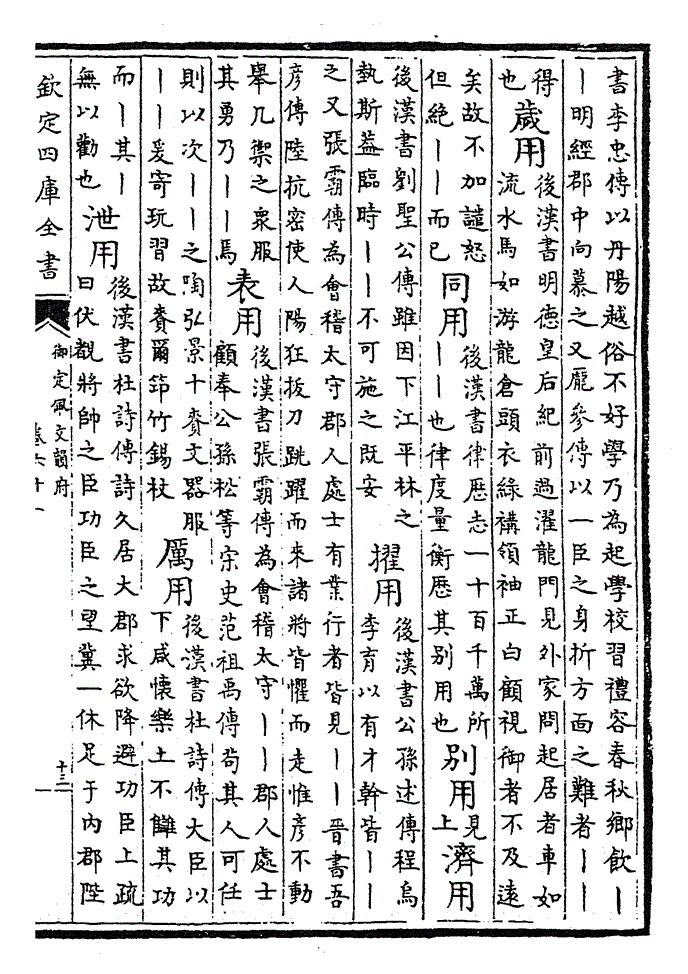 書李忠傳以丹陽越俗不好學乃為起學校習禮容春秋鄉飲丨
丨明經郡中向慕之又龐參傳以一臣之身折方面之難者丨丨
得
也
歲用
後漢書明德皇后紀前過濯龍門見外家問起居者車如
流水馬如游龍倉頭衣綠褠領袖正白顧視御者不及遠
矣故不加譴怒
但絶丨丨而已
同用
後漢書律歷志一十百千萬所
丨丨也律度量衡歷其别用也
别用
見
上
濟用
後漢書劉聖公傳雖因下江平林之
執斯葢臨時丨丨不可施之既安
擢用
後漢書公孫述傳程烏
李育以有才幹皆丨丨
之又張霸傳為會稽太守郡人處士有業行者皆見丨丨晉書吾
彦傳陸抗密使人陽狂拔刀跳躍而來諸將皆懼而走惟彦不動
舉几禦之衆服
其勇乃丨丨焉
表用
後漢書張霸傳為會稽太守丨丨郡人處士
顧奉公孫松等宋史范祖禹傳茍其人可任
則以次丨丨之陶弘景十賚文器服
丨丨爰寄玩習故賚爾筇竹錫杖
厲用
後漢書杜詩傳大臣以
下咸懷樂土不讎其功
而丨其丨
無以勸也
泄用
後漢書杜詩傳詩久居大郡求欲降避功臣上疏
曰伏觀將帥之臣功臣之望冀一休足于内郡陛
欽定四庫全書
御定佩文韻府
卷六十一
十三